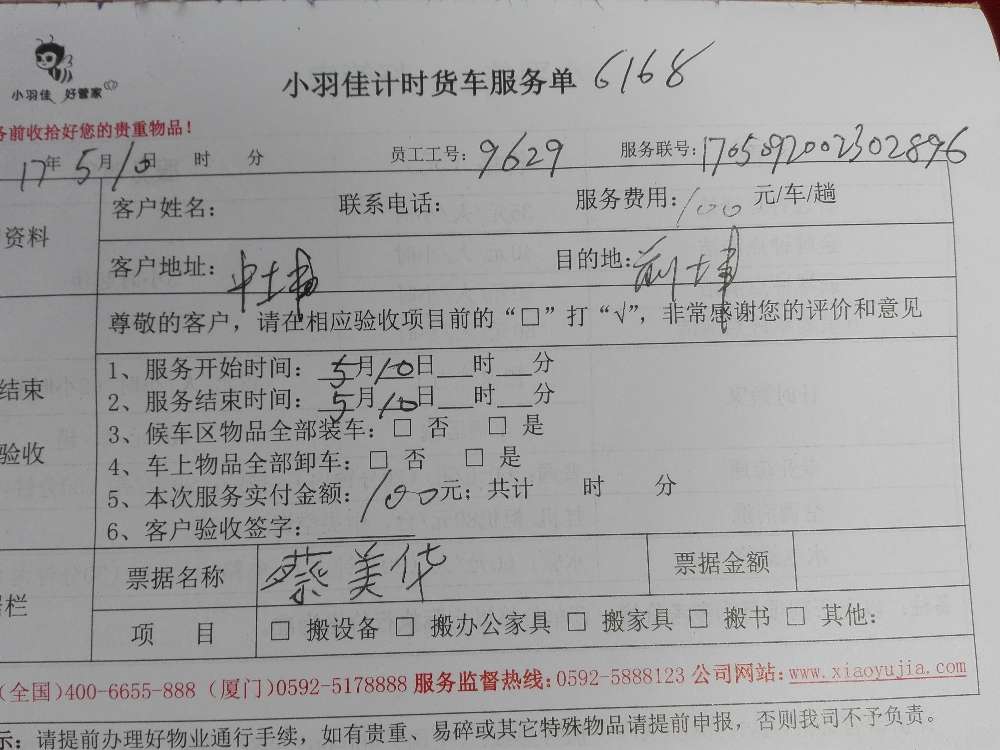 小羽佳 好管家
小羽佳计时货车服务单 6168
务前收拾好您的贵重物品！
17年 5月10日 时 分 员工工号：9629 服务联号：1705092002302896
资料
客户姓名： 联系电话： 服务费用：100 元/车/趟
客户地址： 目的地：前埔
尊敬的客户，请在相应验收项目前的“□”打“√”，非常感谢您的评价和意见
结束
验收
1、服务开始时间：5月10日___时___分
2、服务结束时间：5月10日___时___分
3、候车区物品全部装车：□ 否 □ 是
4、车上物品全部卸车：□ 否 □ 是
5、本次服务实付金额：100元；共计 时 分
6、客户验收签字：
据栏
票据名称 蔡美华 票据金额
项 目 □ 搬设备 □ 搬办公家具 □ 搬家具 □ 搬书 □ 其他：
(全国)400-6655-888 (厦门)0592-5178888 服务监督热线：0592-5888123 公司网站：www.xiaoyujia.com
示：请提前办理好物业通行手续，如有贵重、易碎或其它特殊物品请提前申报，否则我司不予负责。